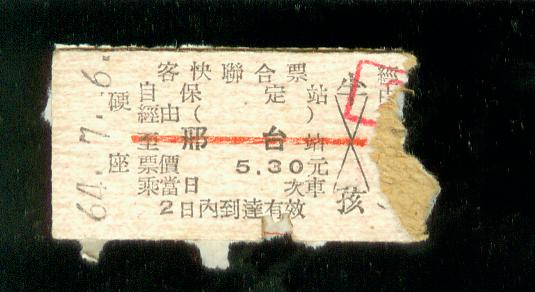 客快聯合票
自保定站
經由( )
至邢台站
票價5.30元
乘當日 次車
2日內到達有效
硬座
孩
64.7.6.
經由